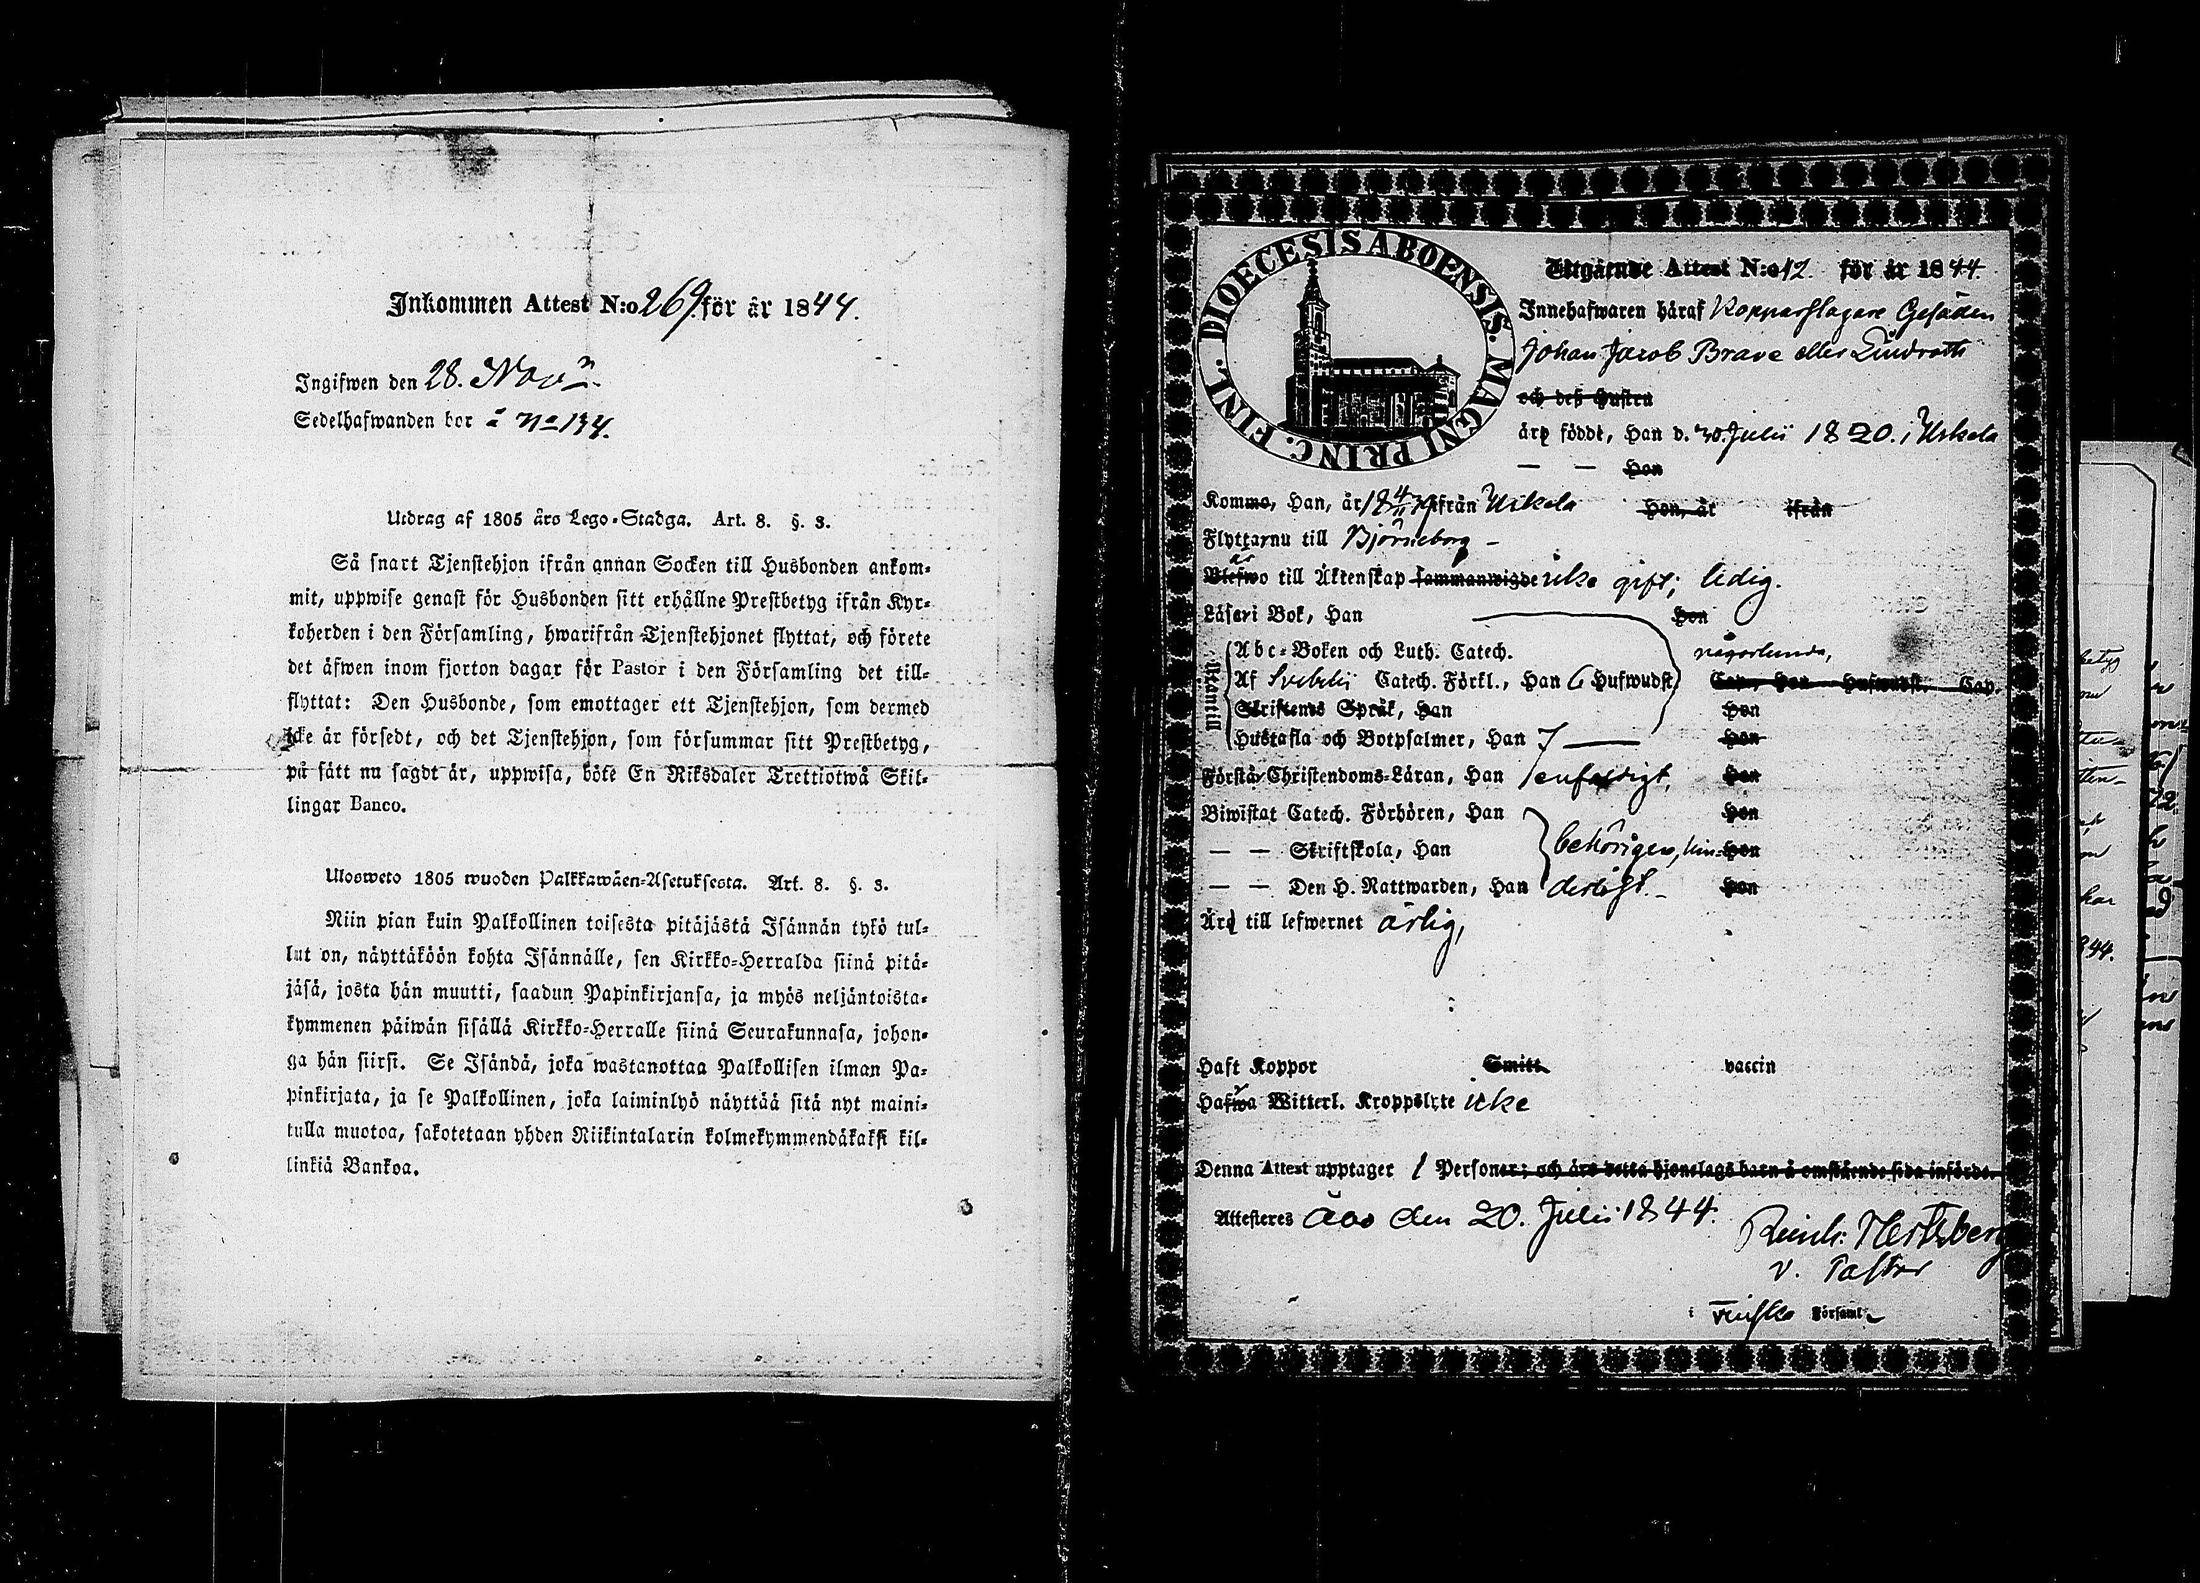 Inkommen Attest N:o 269. för år 1844.
Ingifwen den 28. Nov:
Sedelhafwanden bor å No 134.
Utdrag af 1805 års Lego-Stadga. Art. 8. §. 3.
Så snart Tjenstehjon ifrån annan Socken till Husbonden ankom-
mit, uppwise genast för Husbonden sitt erhållne Prestbetyg ifrån Kyr-
koherden i den Församling, hwarifrån Tjenstehjonet flyttat, och förete
det äfwen inom fjorton dagar för Pastor i den Församling det till-
flyttat: Den Husbonde, som emottager ett Tjenstehjon, som dermed
icke är försedt, och det Tjenstehjon, som försummar sitt Prestbetyg,
på sätt nu sagdt är, uppwisa, böte En Riksdaler Trettiotwå Skil-
lingar Banco.
Ulosweto 1805 wuoden Palkkawäen-Asetuksesta. Art. 8. §. 3.
Niin pian kuin Palkollinen toisesta pitäjästä Isännän tykö tul-
lut on, näyttäköön kohta Isännälle, sen Kirkko-Herralda siinä pitä-
jäsä, josta hän muutti, saadun Papinkirjansa, ja myös neljäntoista-
kymmenen päiwän sisällä Kirkko-Herralle siinä Seurakunnasa, johon-
ga hän siirsi. Se Isändä, joka wastanottaa Palkollisen ilman Pa-
pinkirjata, ja se Palkollinen, joka laiminlyö näyttää sitä nyt maini-
tulla muotoa, sakotetaan yhden Riikintalarin kolmekymmendäkaksi kil-
linkiä Bankoa.
DIOECESIS ABOENSIS. MAGNI PRINC. FINL.
Utgående Attest N:o 12. för år 1844
Innehafwaren häraf Kopparslagare Gesällen
Johan Jacob Brave eller Lindroth
och deß Hustru
äro född, Han d. 30. Julii 1820. i Uskela
— — Hon
Komme, Han, år ifrån Uskela Hon, år ifrån
Flyttar nu till Björneborg –
är
Blefwo till Äktenskap sammanwigde icke gift; ledig.
Läser i Bok, Han Hon
Utantill
Abc-Boken och Luth. Catech. någorlunda,
Af Svebelii Catech. Förkl., Han 6 Hufwudst. Cap., Hon Hufwudst. Cap.
Skriftens Språk, Han Hon
Hustafla och Botpsalmer, Han 7 — Hon
Förstår Christendoms-Läran, Han enfaldigt, Hon
Biwistat Catech. Förhören, Han Hon
— — Skriftskola, Han behörigen, hin- Hon
— — Den H. Nattwarden, Han derligt – Hon
Äro till lefwernet ärlig,
Haft Koppor Smitt. vaccin
Hafwa Witterl. Kroppslyte icke
Denna Attest upptager 1 Personer; och äro detta hjonelags barn å omstående sida införde.
Attesteres Åbo den 20. Julii 1844.
Reinh: Hertzberg
v. Pastor
i Finska Församl.